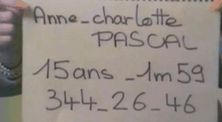 Anne-charlotte
PASCAL
15ans - 1m59
344-26-46